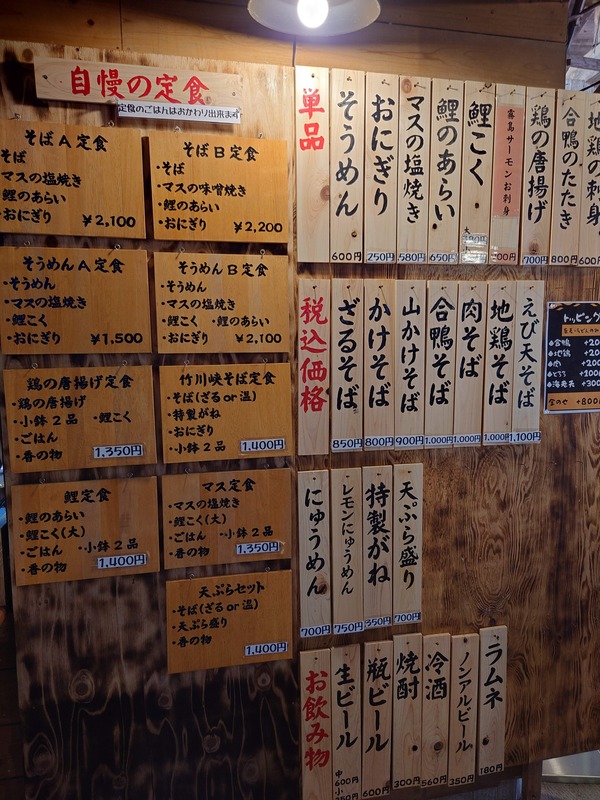 自慢の定食
定食のごはんはおかわり出来ます
そばA定食
そば
・マスの塩焼き
・鯉のあらい
・おにぎり ¥2,100
そばB定食
・そば
・マスの味噌焼き
・鯉のあらい
・おにぎり ¥2,200
そうめんA定食
・そうめん
・マスの塩焼き
・鯉こく
・おにぎり ¥1,500
そうめんB定食
・そうめん
・マスの塩焼き
・鯉こく ・鯉のあらい
・おにぎり ¥2,100
鶏の唐揚げ定食
・鶏の唐揚げ
・小鉢2品 ・鯉こく
・ごはん
・香の物 1,350円
竹川峡そば定食
・そば(ざるor温)
・特製がね
・おにぎり
・小鉢2品 1,400円
鯉定食
・鯉のあらい
・鯉こく(大)
・ごはん ・小鉢2品
・香の物 1,400円
マス定食
・マスの塩焼き
・鯉こく(大)
・ごはん ・小鉢2品
・香の物 1,350円
天ぷらセット
・そば(ざるor温)
・天ぷら盛り
・香の物 1,400円
単品
そうめん 600円
おにぎり 250円
マスの塩焼き 580円
鯉のあらい 650円
鯉こく
霧島サーモンお刺身
鶏の唐揚げ 700円
合鴨のたたき 800円
地鶏の刺身 600円
税込価格
ざるそば 850円
かけそば 800円
山かけそば 900円
合鴨そば 1,000円
肉そば 1,000円
地鶏そば 1,000円
えび天そば 1,100円
トッピング
◆合鴨
◆地鶏
◆肉
◆とろろ
◆海老天 +300
全のせ +800
にゅうめん 700円
レモンにゅうめん 750円
特製がね 350円
天ぷら盛り 700円
お飲み物
生ビール 中 600円
小 350円
瓶ビール 600円
焼酎 300円
冷酒 560円
ノンアルビール 350円
ラムネ 180円